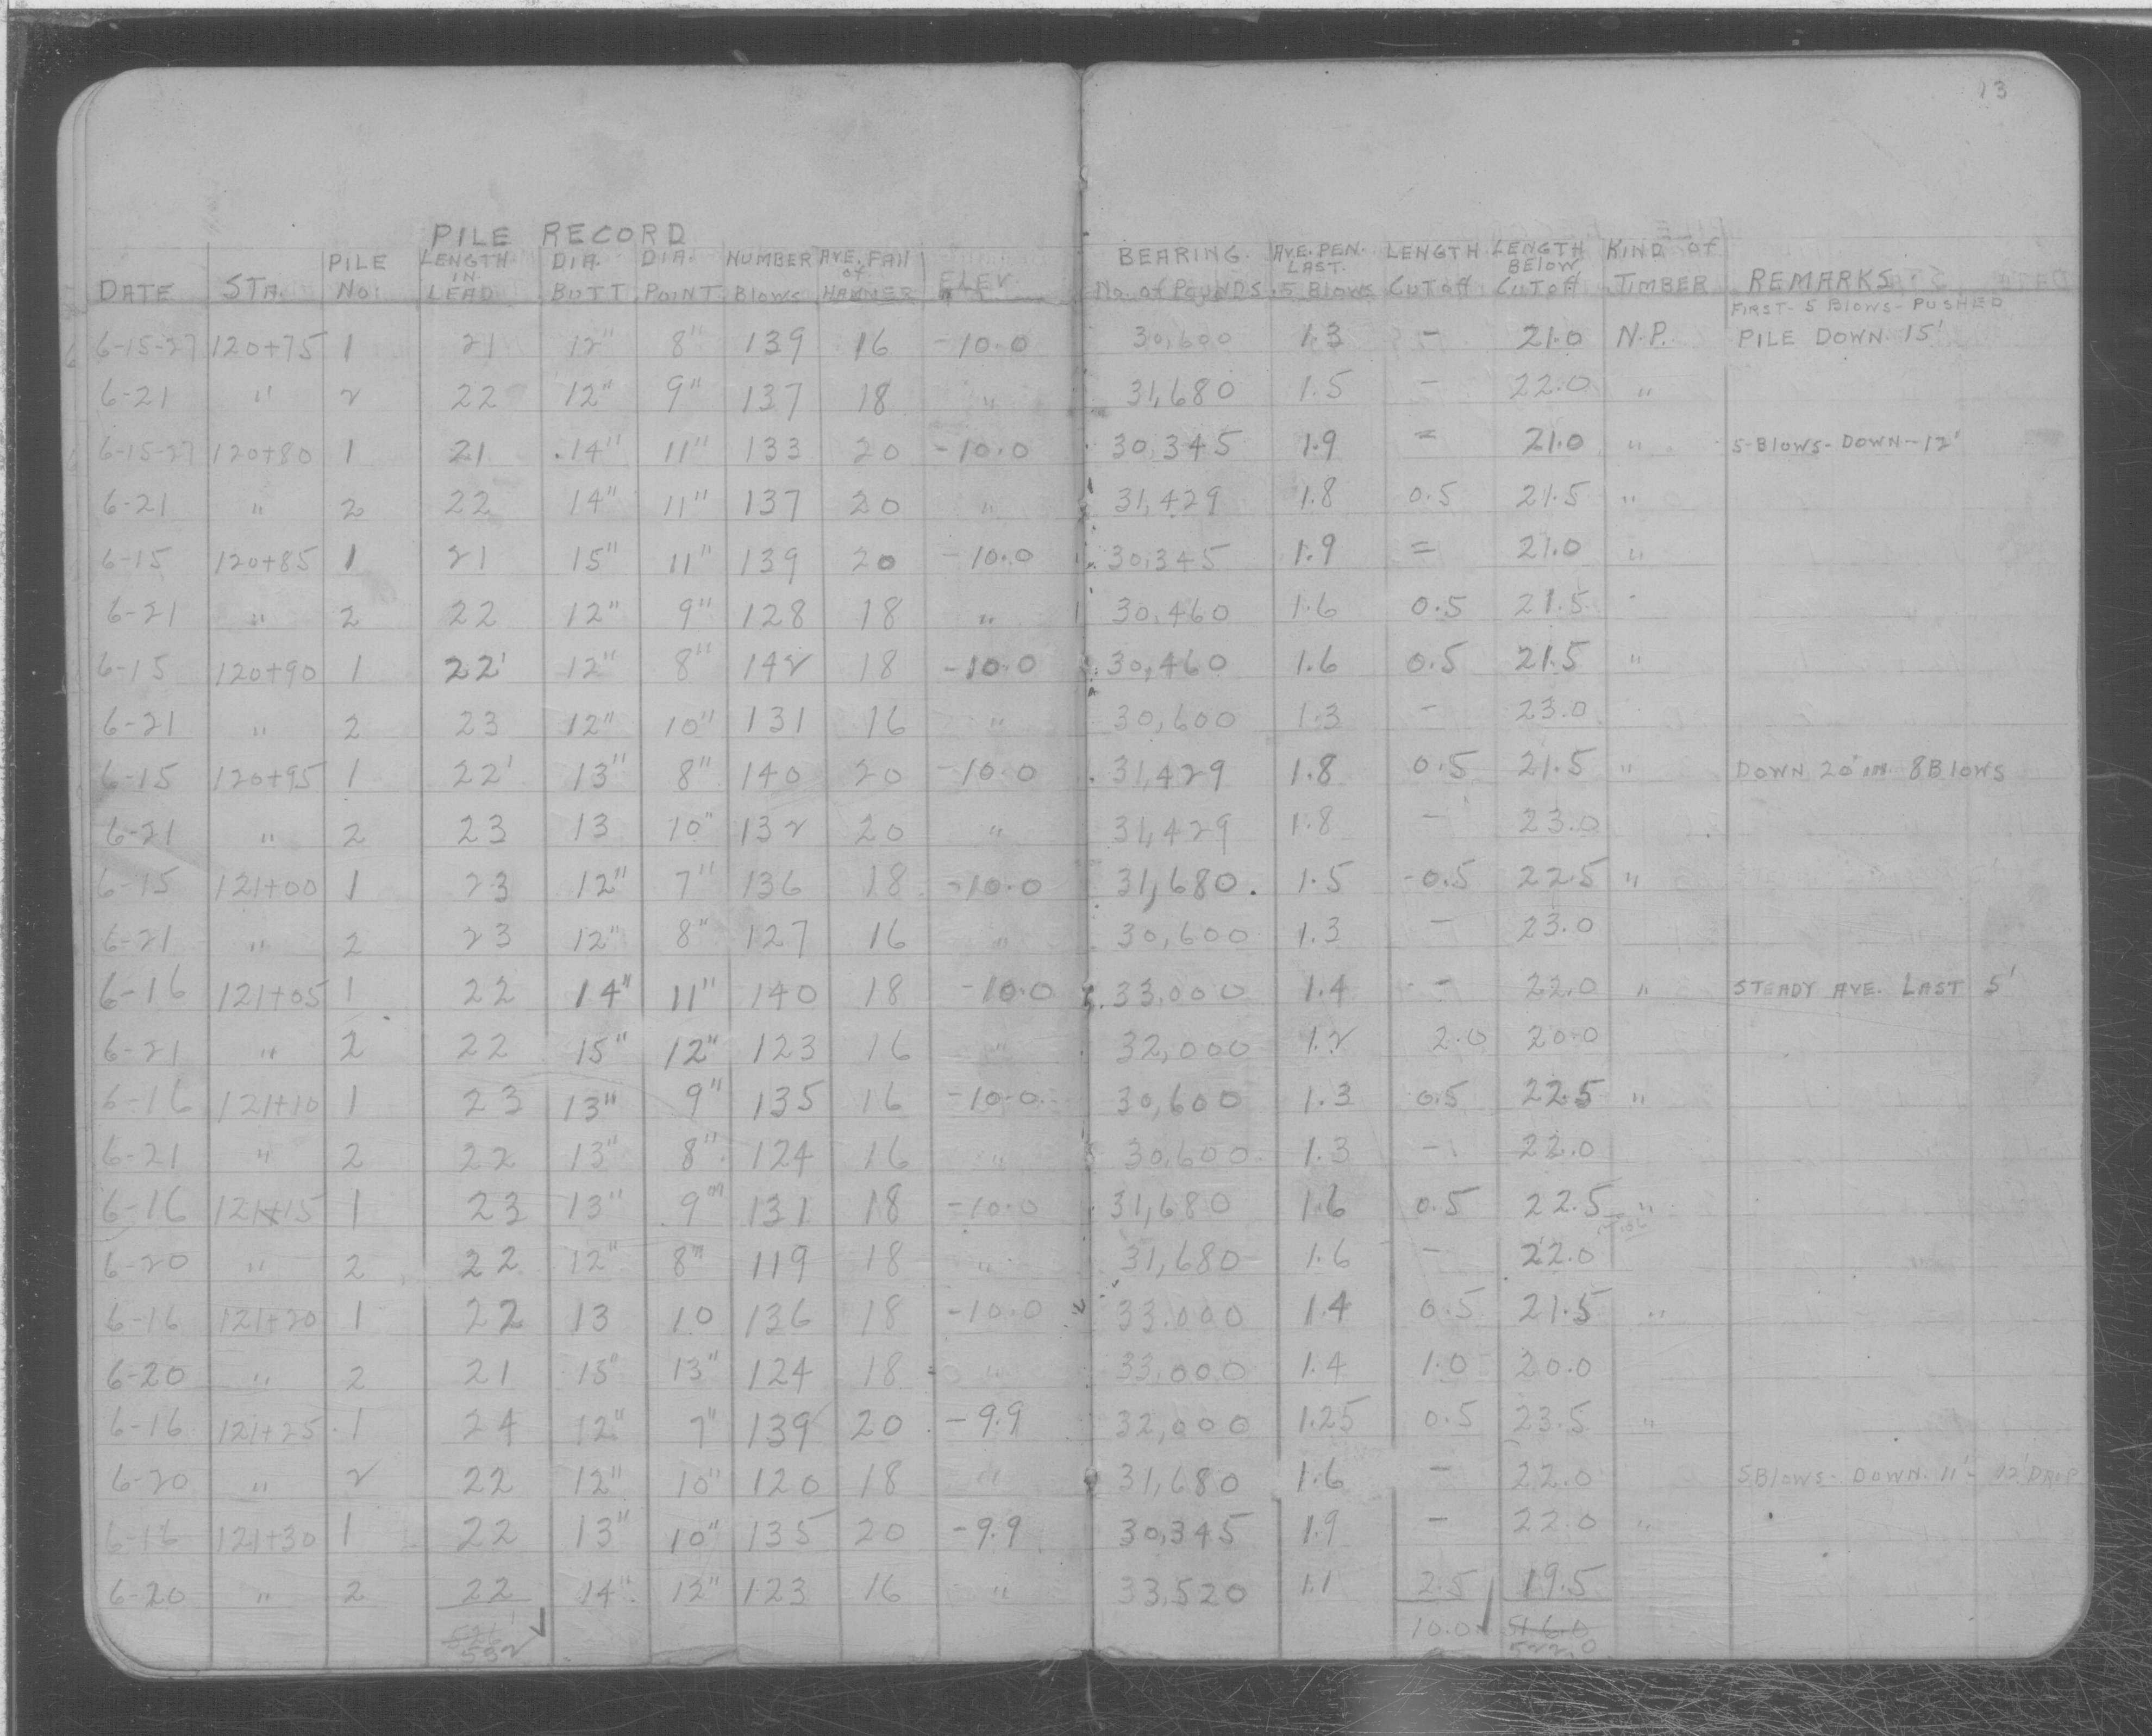 13
PILE RECORD
DATE STA. PILE No. LENGTH IN LEAD DIA. BUTT DIA. POINT NUMBER Blows AVE. FAll of HAMMER ELEV. BEARING No. of POUNDS AVE. PEN. LAST 5 Blows LENGTH CUToff LENGTH BELOW CUToff KIND of TIMBER REMARKS
FIRST- 5 Blows- PUSHED
6-15-27 120+75 1 21 12" 8" 139 16 -10.0 30,600 1.3 - 21.0 N.P. PILE DOWN 15'
6-21 " 2 22 12" 9" 137 18 " 31,680 1.5 - 22.0 "
6-15-27 120+80 1 21 14" 11" 133 20 -10.0 30,345 1.9 = 21.0 " 5-Blows- DOWN-12'
6-21 " 2 22 14" 11" 137 20 " 31,429 1.8 0.5 21.5 "
6-15 120+85 1 21 15" 11" 139 20 -10.0 30,345 1.9 = 21.0 "
6-21 " 2 22 12" 9" 128 18 " 30,460 1.6 0.5 21.5 "
6-15 120+90 1 22' 12" 8" 142 18 -10.0 30,460 1.6 0.5 21.5 "
6-21 " 2 23 12" 10" 131 16 " 30,600 1.3 - 23.0
6-15 120+95 1 22' 13" 8" 140 20 -10.0 31,429 1.8 0.5 21.5 " DOWN 20' in 8 Blows
6-21 " 2 23 13 10" 132 20 " 31,429 1.8 - 23.0
6-15 121+00 1 23 12" 7" 136 18 -10.0 31,680. 1.5 -0.5 22.5 "
6-21 " 2 23 12" 8" 127 16 " 30,600 1.3 - 23.0
6-16 121+05 1 22 14" 11" 140 18 -10.0 33,000 1.4 - 22.0 " STEADY AVE. LAST 5'
6-21 " 2 22 15" 12" 123 16 " 32,000 1.2 2.0 20.0
6-16 121+10 1 23 13" 9" 135 16 -10.0 30,600 1.3 0.5 22.5 "
6-21 " 2 22 13" 8" 124 16 " 30,600 1.3 - 22.0
6-16 121+15 1 23 13" 9" 131 18 -10.0 31,680 1.6 0.5 22.5 "
6-20 " 2 22 12" 8" 119 18 " 31,680 1.6 - 22.0
6-16 121+20 1 22 13 10 136 18 -10.0 33,000 1.4 0.5 21.5 "
6-20 " 2 21 15" 13" 124 18 " 33,000 1.4 1.0 20.0
6-16 121+25 1 24 12" 7" 139 20 -9.9 32,000 1.25 0.5 23.5 "
6-20 " 2 22 12" 10" 120 18 " 31,680 1.6 - 22.0 5 Blows- DOWN 11'- 12' DROP
6-16 121+30 1 22 13" 10" 135 20 -9.9 30,345 1.9 - 22.0 "
6-20 " 2 22 14" 12" 123 16 " 33,520 1.1 2.5 19.5
10.0 516.0
532 522.0